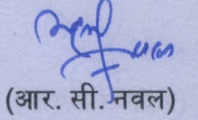 (आर. सी. नवल)